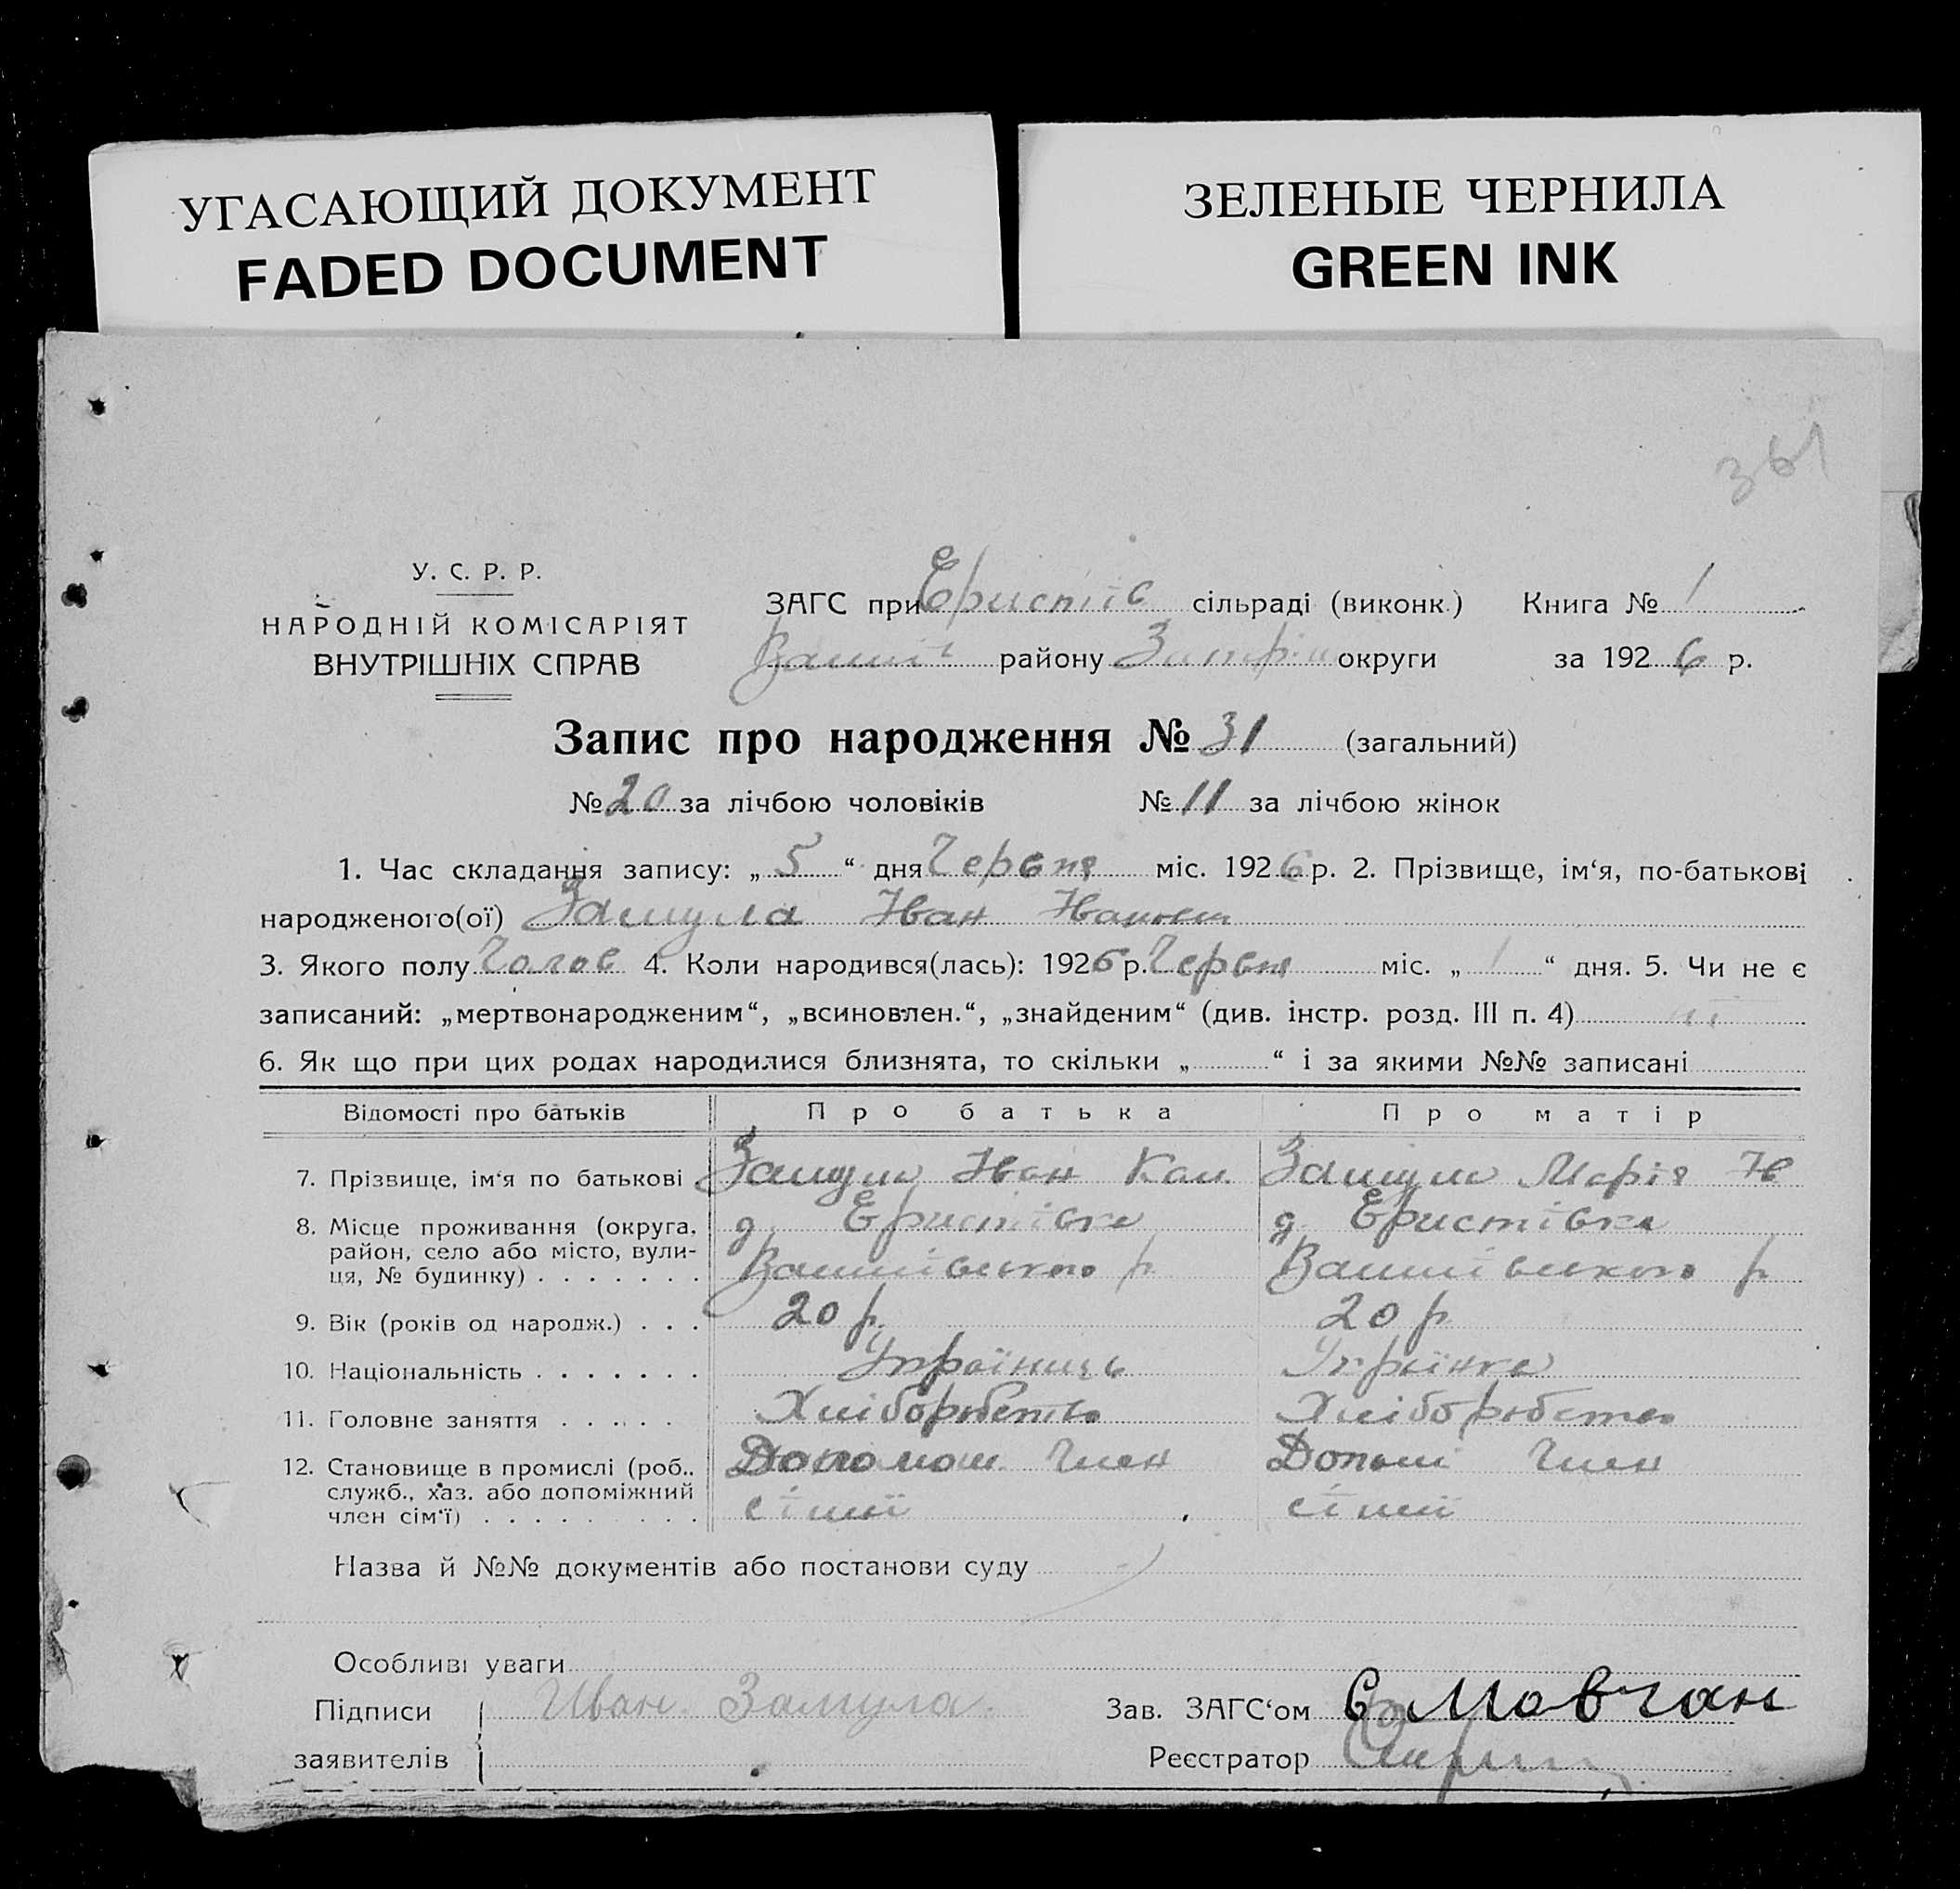 УГАСАЮЩИЙ ДОКУМЕНТ
FADED DOCUMENT
ЗЕЛЕНЫЕ ЧЕРНИЛА
GREEN INK
361
У. С. Р. Р.
НАРОДНІЙ КОМІСАРІЯТ
ВНУТРІШНІХ СПРАВ
ЗАГС при Еристів сільраді (виконк.) Книга № 1
району округи за 1926 р.
Запис про народження № 31 (загальний)
№ 20 за лічбою чоловіків № 11 за лічбою жінок
1. Час складання запису: „5“ дня Червня міс. 1926 р. 2. Прізвище, ім‘я, по-батькові
народженого(ої) Замула Іван
3. Якого полу Чолов 4. Коли народився(лась): 1926 р. Червня міс. „1“ дня. 5. Чи не є
записаний: „мертвонародженим“, „всиновлен.“, „знайденим“ (див. інстр. розд. III п. 4)
6. Як що при цих родах народилися близнята, то скільки „ “ і за якими №№ записані
Відомості про батьків Про батька Про матір
7. Прізвище, ім‘я по батькові Замула Іван Замула Марія Ів
8. Місце проживання (округа, д. Еристівка д. Еристівка
район, село або місто, вули-
ця, № будинку) р. р
9. Вік (років од народж.) 20 р. 20 р
10. Національність Українць Українка
11. Головне заняття Хліборобство Хліборобство
12. Становище в промислі (роб., Допомож. Член Допом Член
служб., хаз. або допоміжний
член сім‘ї) сімії сімії
Назва й №№ документів або постанови суду
Особливі уваги
Підписи Иван Замула Зав. ЗАГС‘ом Є Мовчан
заявителів Реєстратор